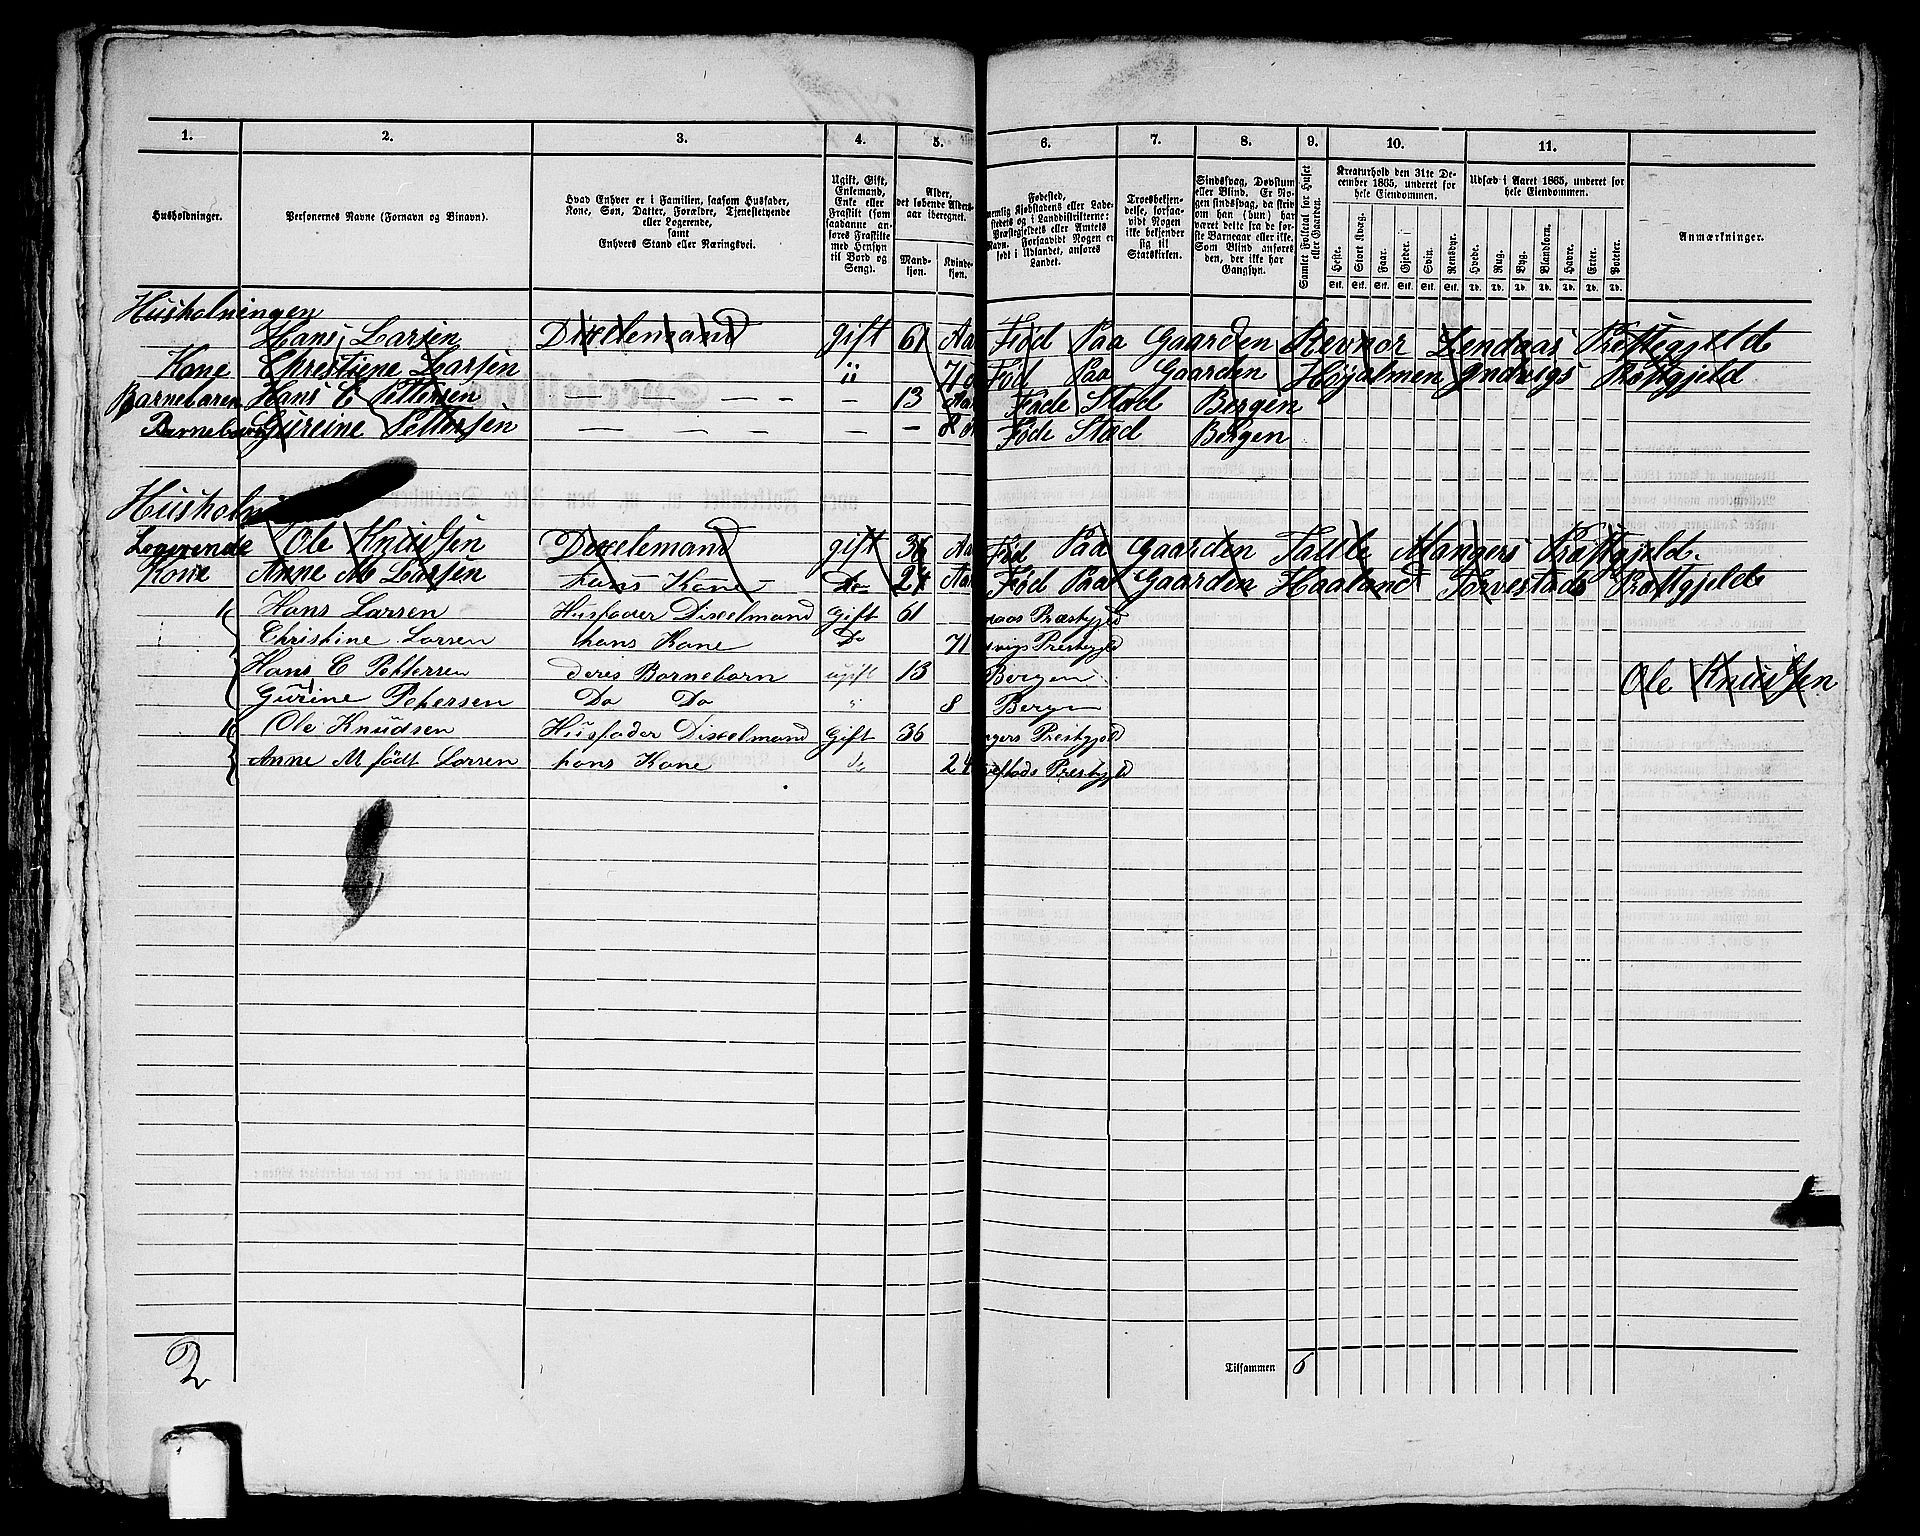 1. 2. 3. 4. 5. 6. 7. 8. 9. 10. 11.
Husholdninger.
Personernes Navne (Fornavn og Binavn).
Hvad Enhver er i Familien, saasom Husfader,
Kone, Søn, Datter, Forældre, Tjenestetyende
eller Logerende,
samt
Enhvers Stand eller Næringsvei.
Ugift, Gift,
Enkemand,
Enke eller
Fraskilt (som
saadanne an-
føres Fraskilte
med Hensyn
til Bord og
Seng).
Alder,
det løbende Alders-
aar iberegnet.
Mand-
kjøn.
Kvinde-
kjøn.
Fødested,
Troesbekjen-
delse, forsaa-
vidt Nogen
ikke bekjender
sig til
Statskirken.
Sindssvag, Døvstum
eller Blind. Er No-
gen sindssvag, da skriv
om han (hun) har
været dette fra de før-
ste Barneaar eller ikke.
Som Blind anføres
den, der ikke har
Gangsyn.
Samlet Folketal for Huset
eller Gaarden.
Kreaturhold den 31te De-
cember 1865, underet for
hele Eiendommen.
Heste. Stort Kvæg. Faar. Gjeder. Svin. Rensdyr.
Stk. Stk. Stk. Stk. Stk. Stk.
Udsæd i Aaret 1865, underet for
hele Eiendommen.
Hvede. Rug. Byg. Blandkorn. Havre. Erter. Poteter.
Td. Td. Td. Td. Td. Td. Td.
Anmærkninger.
Husholningen
Hans Larsen Dixelemand gift 61 Aa Fød Paa Gaarden Revnor Lendaas Præstegjeld
Kone Christiene Larsen ü 71 Fød Paa Gaarden Høyalmen Indvigs Præstgjeld
Barnebaren Hans C Pettersen — — — — 13 Aa Føde Stad Bergen
Barnebaren Gureine Pettersen — — — — 8 Føde Stad Bergen
Husholn
Logerende Ole Knudsen Dexelemand gift 36 Aa Fød Paa Gaarden Sætle Mangers Præstgjeld.
Kone Anne M Larsen hans Kone Do 24 Aa Fød Paa Gaarden Haaland Torvestads Præstgjeld
1 Hans Larsen Husfader Dixelmand Gift 61 naas Præstgjeld
Christine Larsen hans Kone Do 71 vigs Prestegjeld
Hans C Pettersen deres Barnebarn ugift 13 Bergen
Gurine Petersen Do Do " 8 Bergen
Ole Knudsen
1 Ole Knudsen Husfader Dixelmand Gift 36 ngers Prestgjeld
Anne M født Larsen hans Kone do 24 vestads Prestgjeld
2
Tilsammen 6